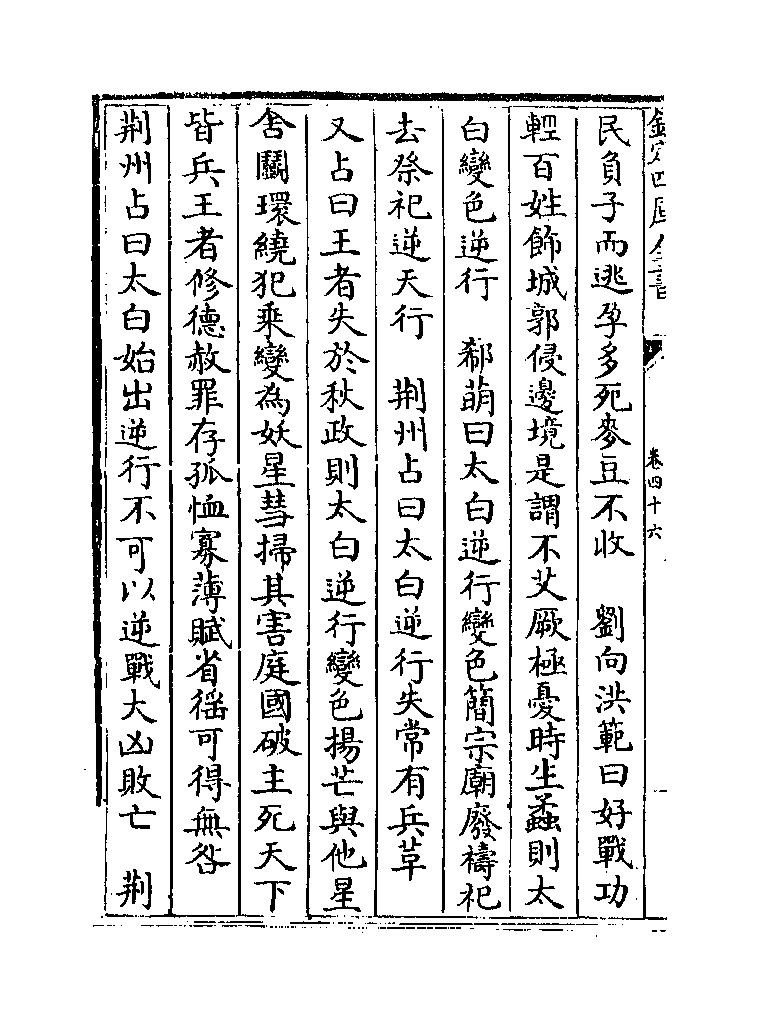 欽定四庫全書
卷四十六
民負子而逃孕多死麥豆不收　劉向洪範曰好戰功
輕百姓飾城郭侵邊境是謂不艾厥極憂時生蟊則太
白變色逆行　郗萌曰太白逆行變色簡宗廟廢禱祀
去祭祀逆天行　荆州占曰太白逆行失常有兵草
又占曰王者失於秋政則太白逆行變色揚芒與他星
舍鬬環繞犯乘變為妖星彗掃其害庭國破主死天下
皆兵王者修德赦罪存孤恤寡薄賦省徭可得無咎
荆州占曰太白始出逆行不可以逆戰大凶敗亡　荆